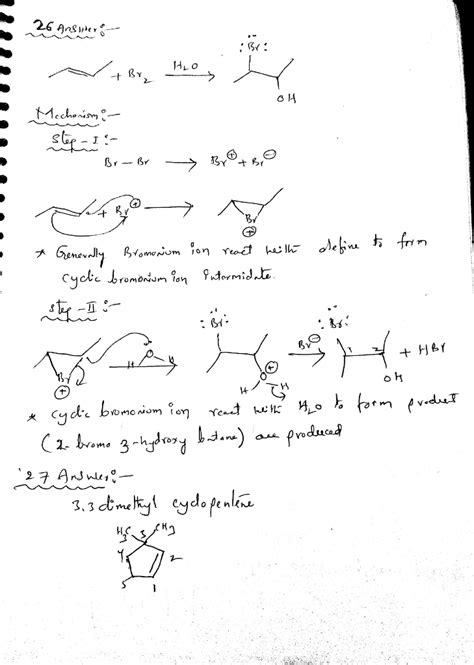 26 Answer:-
: Br :
+ Br2 H2O
OH
Mechanism:-
Step - I :-
Br - Br → Br⊕ + Br⊖
+ Br⊕ → Br
⊕
* Generally Bromonium ion react with define to form
cyclic bromonium ion Intermidate.
step - II :-
: Br : Br⊖ : Br :
O 1 2 + HBr
H H
Br ⊕ O⊕ H OH
H
* cyclic bromonium ion react with H2O to form product
(2-bromo 3-hydroxy butane) are produced
27 Answer:-
3.3 dimethyl cyclopentene
H3C 3 CH3
4 2
5 1